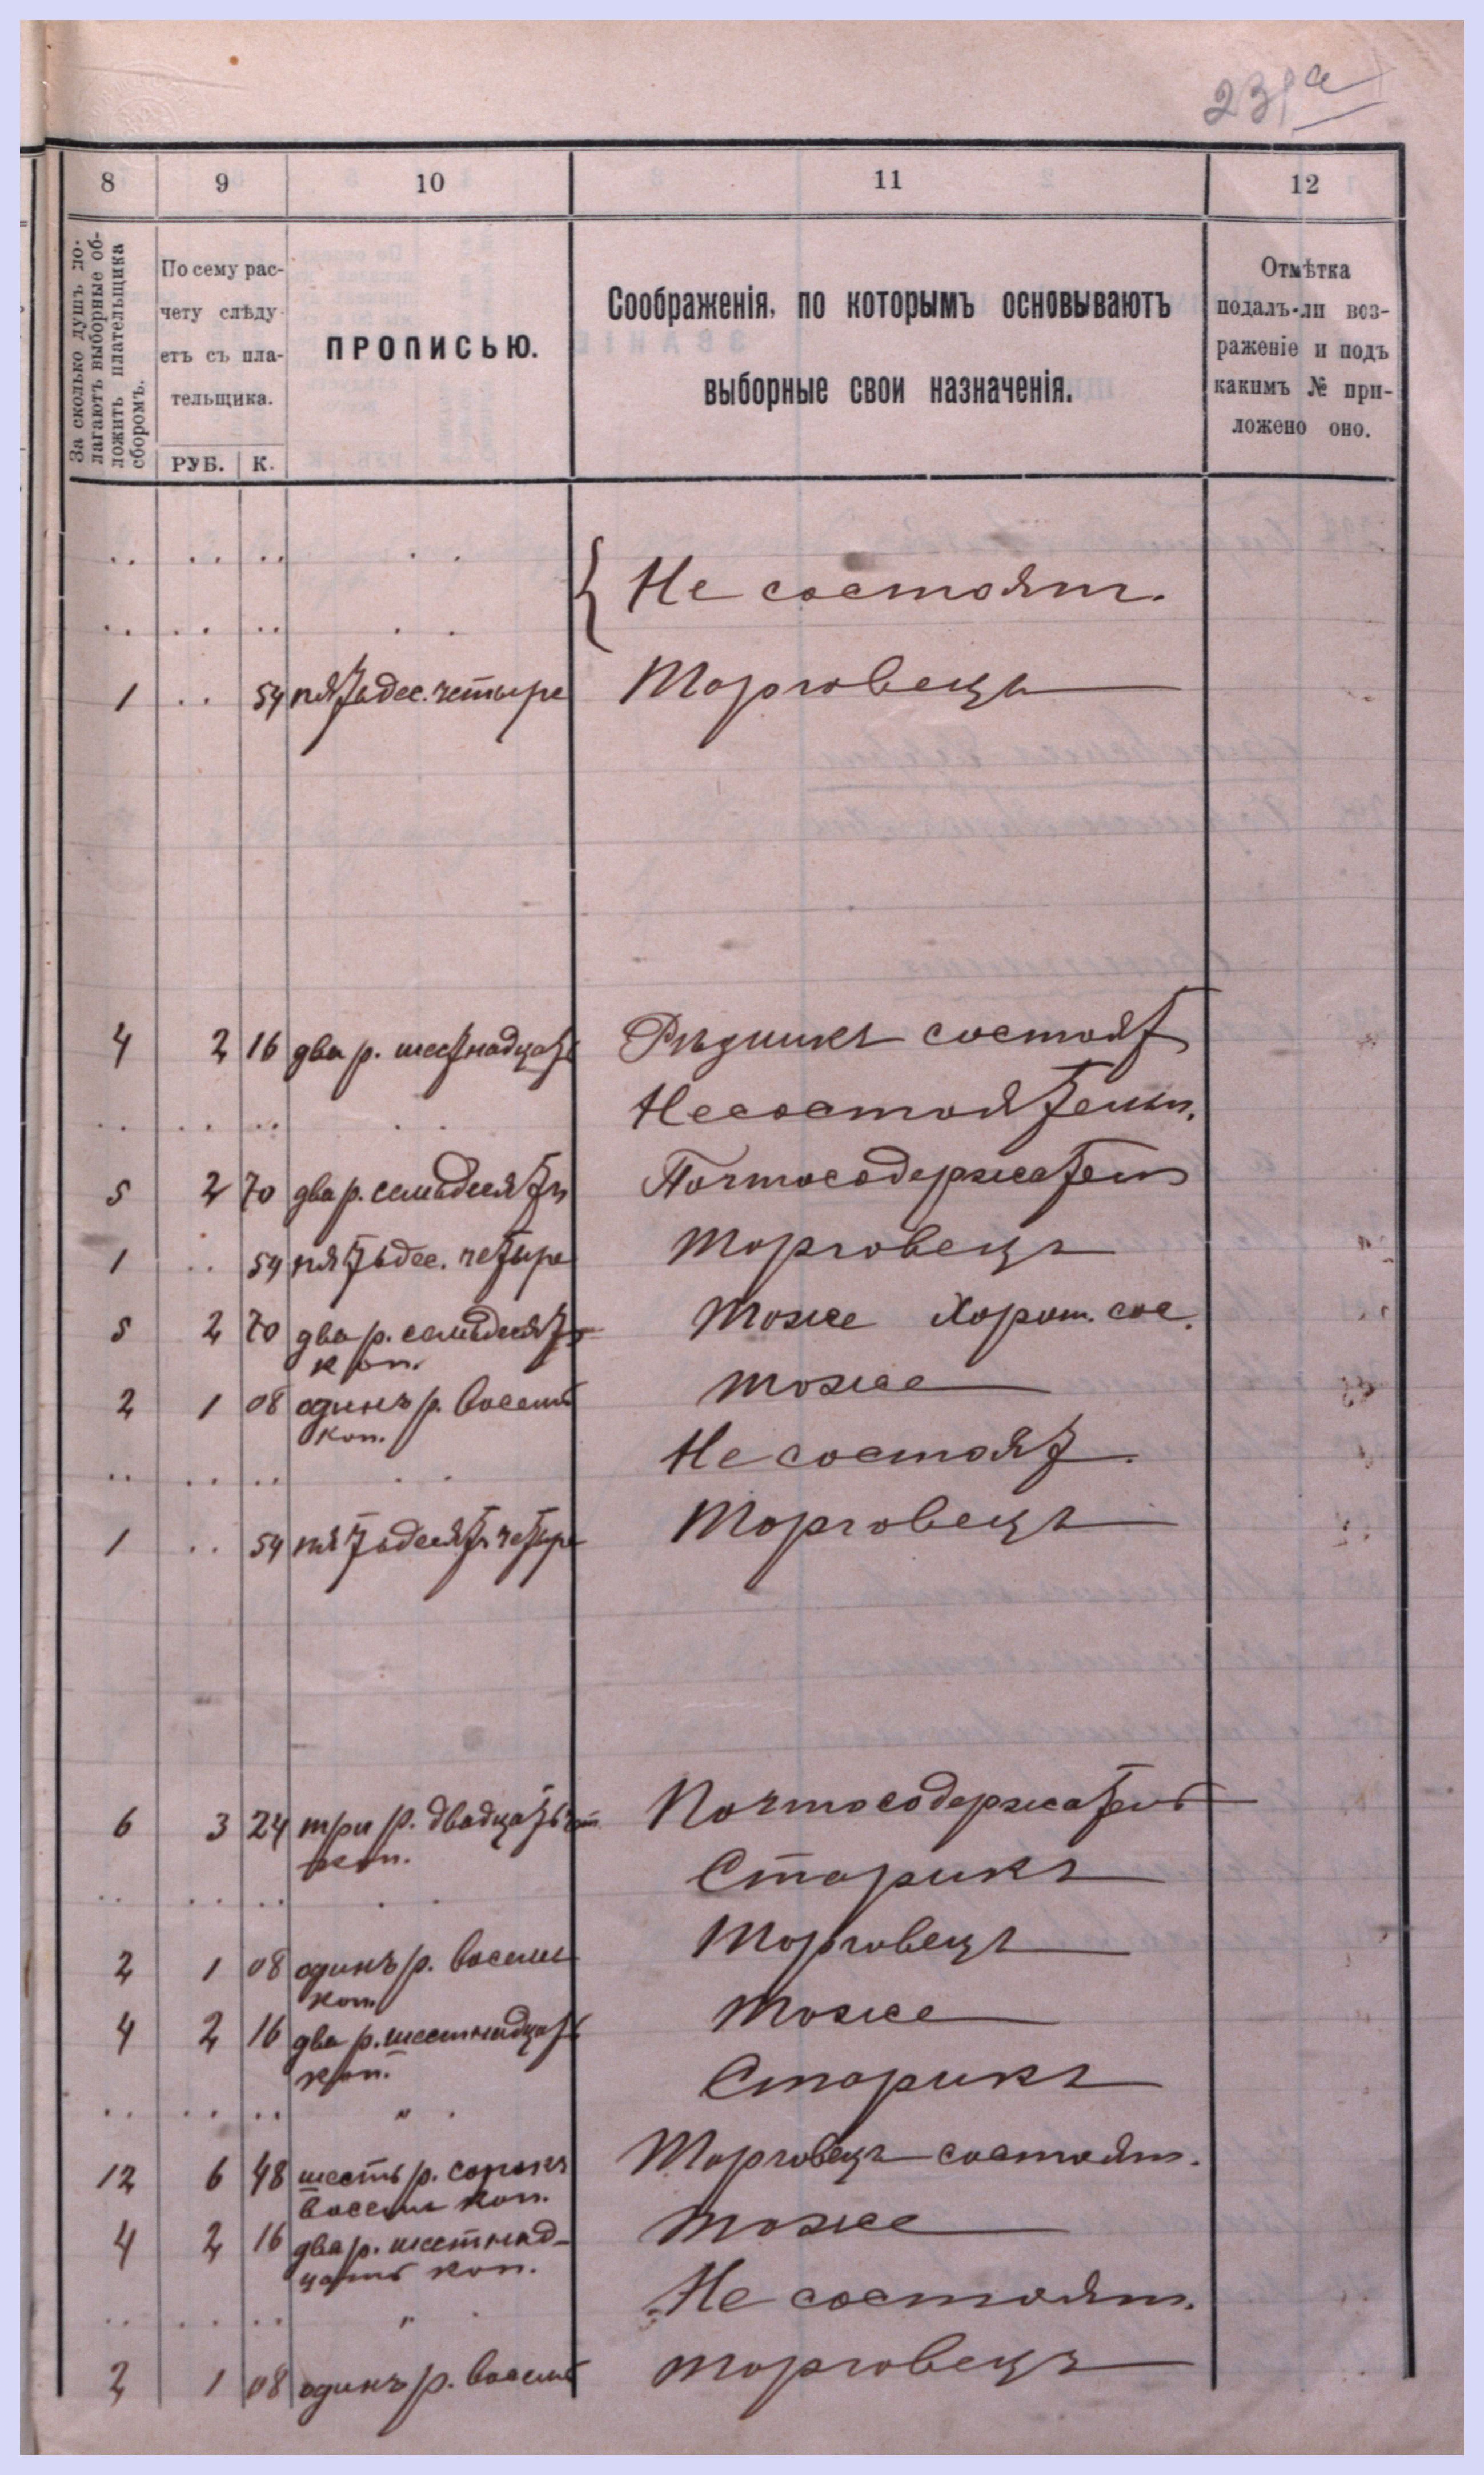 231а
8 9 10 11 12
За сколько душъ по-
лагаютъ выборные об-
ложить плательщика
сборомъ.
По сему рас-
чету слѣду
етъ съ пла-
тельщика.
РУБ. К.
ПРОПИСЬЮ.
Соображенія, по которымъ основываютъ
выборные свои назначенія.
Отмѣтка
подалъ-ли воз-
раженіе и подъ
какимъ № при-
ложено оно.
.. .. .. . . { Не состоят.
.. .. .. . .
1 .. 54 пятьдес. четыре Торговецъ
4 2 16 два р. шестнадцать Рѣзникъ состоят
.. .. .. . . Несостоятельн.
5 2 70 два р. семьдесятъ Почтосодержатель
1 .. 54 пятьдес. четыре Торговецъ
5 2 70 два р. семьдесятъ Тоже Хорош. сос.
коп.
2 1 08 одинъ р. восемь тоже
коп.
.. .. .. . . Не состоят.
1 .. 54 пятьдесятъ четыре Торговецъ
6 3 24 три р. двадцать чет. Почтосодержатель
коп.
.. .. .. . . Старикъ
2 1 08 одинъ р. восемь Торговецъ
коп.
4 2 16 два р. шестнадцать тоже
коп.
.. .. .. " . Старикъ
12 6 48 шесть р. сорокъ Торговецъ состоят.
восемь коп.
4 2 16 два р. шестнад- тоже
цать коп.
.. .. .. " . Не состоят.
2 1 08 одинъ р. восемь торговецъ